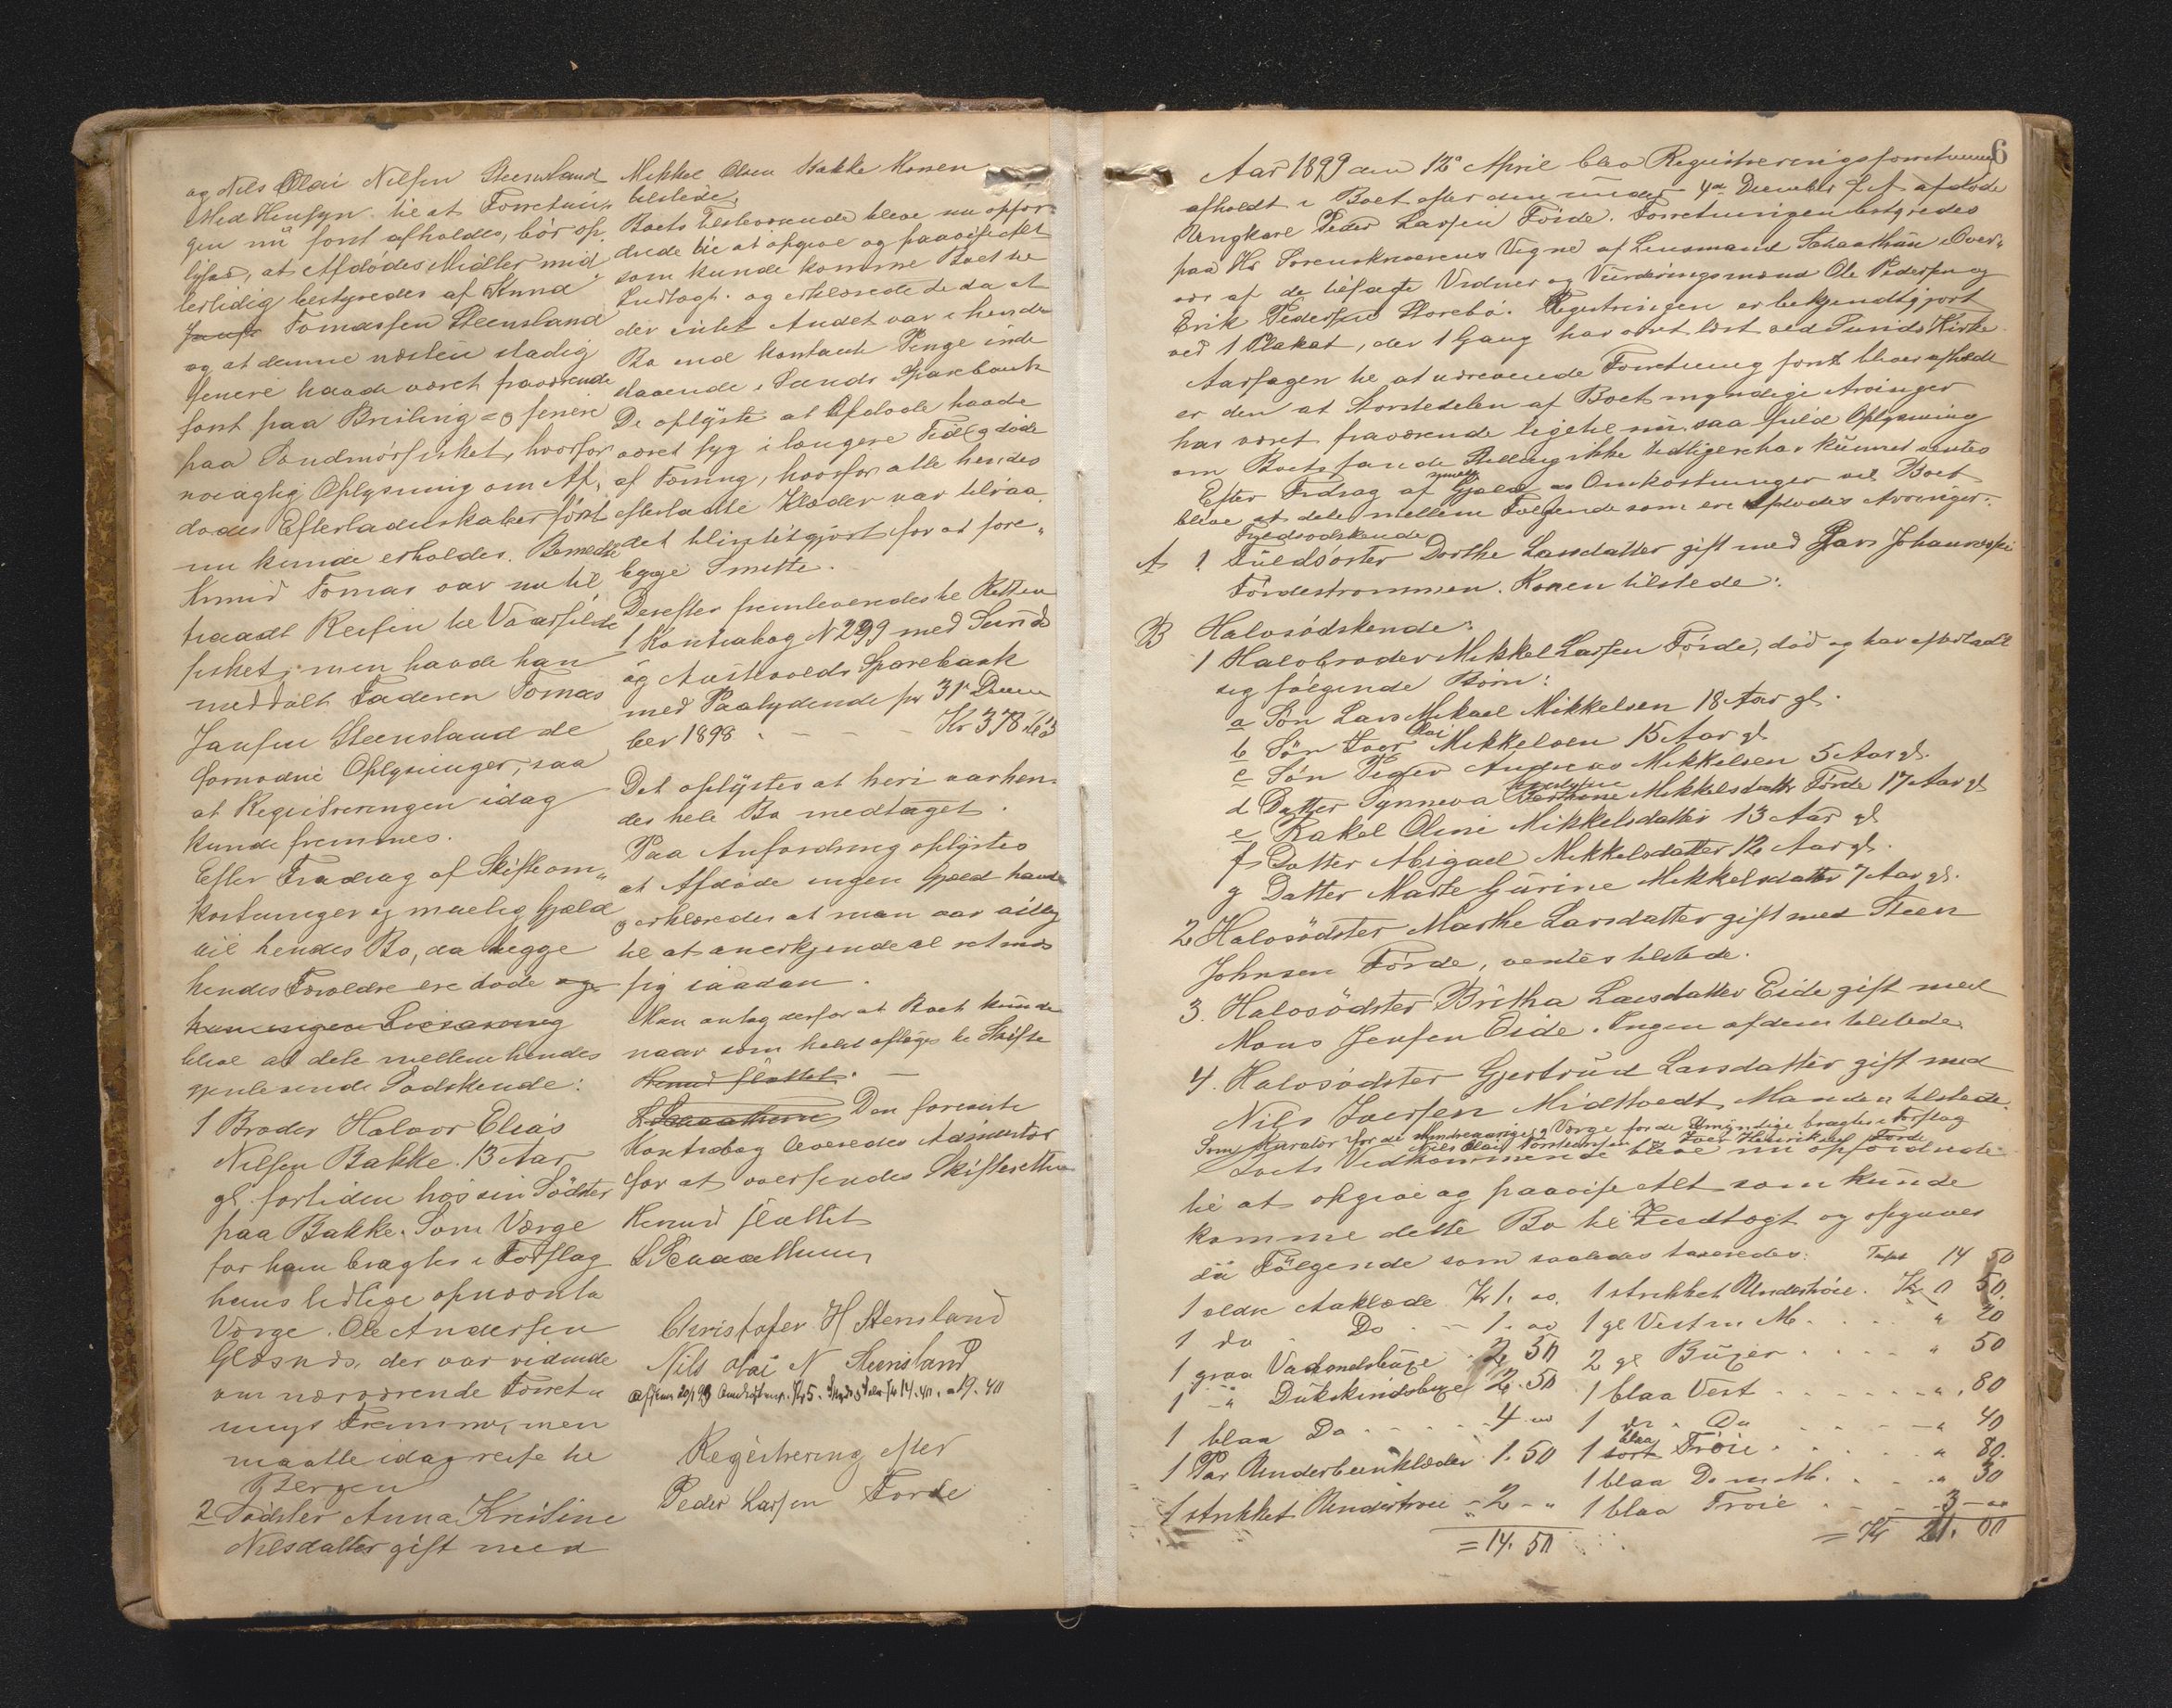 og Nils Olai Nilsen Steensland
Med Hensyn til at Forretnin„
gen nu först afholdes, bör op„
lyses, at Afdödes Midler mid„
lertidig bestyredes af Knud
Jans Tomassen Steensland
og at denne næsten stadig
senere havde været fraværende
först paa Brisling og senere
paa Sondmörfisket, hvorfor
nöiagtig Oplysning om Af„
dödes Efterladenskaber först
nu kunde erholdes. Bemeldte
Knud Tomas var nu til
traadt Reisen til Vaarsild
fisket, men havde han
meddelt Faderen Tomas
Jansen Steensland de
fornödne Oplysninger, saa
at Registreringen idag
kunde fremmes.
Efter Fradrag af Skifteom„
kostninger og muelig Gjæld
vil hendes Bo, da begge
hendes Forældre ere döde og
hun ingen Livsarving
blive at dele mellem hendes
gjenlevende Södskende:
1 Broder Halvor Elias
Nilsen Bakke 13 Aar
gl. fortiden hos sin Södster
paa Bakke. Som Værge
for ham bragtes i Forslag
hans tidlige opnævnte
Værge Ole Andersen
Glæsnes, der var vidende
om nærværende Forret„
nings Fremme, men
maatte idag reise til
Bergen
2 Södster Anna Kristine
Nilsdatter gift med
Mikkel Olsen Bakke Konen
tilstede.
Boets Tilstevarende bleve nu opfor„
drede til at opgive og paavise Alt
som kunde komme Boet til
Indtægt og erklærede de da at
der intet Andet var i hendes
Bo end kontante Penge inde
staaende i Sunds Sparebank
De oplyste at Afdöde havde
været syg i længere Tid og döde
af Tæring, hvorfor alle hendes
efterladte Klæder var tilraa„
det tilintetgjort for at fore„
bygge Smitte.
Derefter fremleveredes til Retten
1 Kontrabog N 299 med Sunds
og Austevolds Sparebank
med Paalydende pr 31 Decem
ber 1898 . - - - Kr 378.63
Det oplystes at heri var hen„
des hele Bo medtaget.
Paa Anfordring oplystes
at Afdöde ingen Gjæld havde
og erklæredes at man var villig
til at anerkjende al retmæs
sig saadan.
Man antog derfor at Boet kunde
naar som helst optages til Skifte
Knud Slattet.
LSchaathun Den foreviste
Kontrabog leveredes Adminstor
for at oversendes Skifteretten
Knud Slattet
LSchaathun
Christofer H Stensland
Nils Olai N Steensland
Registrering efter
Peder Larsen Förde
6
Aar 1899 den 12 April blev Registreringsforretning
afholdt i Boet efter den under 4de December f. A afdöde
Ungkarl Peder Larsen Förde. Forretningen bestyredes
paa Hr Sorenskriverens Vegne af Lensmand Schaathun i Over„
vær af de tilsagte Vidner og Vurderingsmænd Ole Pedersen og
Erik Pedersen Storebö. Registringen er bekjendtgjort
ved 1 Plakat, der 1 Gang har været læst ved Sunds Kirke
Aarsagen til at nærværende Forretning först bliver afholdt
er den at Störstedelen af Boets myndige Arvinger
har været fraværende ligetil nu, saa fuld Oplysning
om Boets sande Stilling ikke tidligere har kunnet ventes
Efter Fradrag af muelig Gjæld og Omkostninger vil Boet
blive at dele mellem Fölgende som ere Afdödes Arvinger:
Fuldsödskende
A 1 Fuldsöster Dorthe Larsdatter gift med Lars Johannessen
Fördestrommen. Konen tilstede:
B Halvsödskende:
1 Halvbroder Mikkel Larsen Förde, död og har efterladt
sig fölgende Börn:
a Sön Lars Mikael Mikkelsen 18 Aar gl.
b Sön Iver Olai Mikkelsen 15 Aar gl
c Sön Peder Andreas Mikkelsen 5 Aar gl.
d Datter Synneva Mikkelsdatter Förde 17 Aar gl
e Rakel Oline Mikkelsdatter 13 Aar gl
f Datter Abigael Mikkelsdatter 12 Aar gl.
g Datter Marte Gurine Mikkelsdatter 7 Aar gl.
2 Halvsödster Marthe Larsdatter gift med Steen
Johnsen Förde, ventes tilstede.
3. Halvsödster Britha Larsdatter Eide gift med
Mons Jensen Eide. Ingen af dem tilstede
4. Halvsödster Gjertrud Larsdatter gift med
Nils Iversen Midttvedt, Manden tilstede.
Som Kurator for de Mindreaarige og Værge for de Umyndige bragtes i Forslag
Nils Olai Torstensen Iver Henriksen Förde
Boets Vedkommende bleve nu opfordrede
til at opgive og paavise Alt som kunde
komme dette Bo til Indtægt og opgaves
da Fölgende som saaledes taxeredes: Trpt 14 50
1 ældre Aaklæde Kr 1. 00. 1 strikket Undertröie. Kr 0 50.
1 do Do - 1. 00 1 gl Vest m M. . . . „ 20
1 graa Vadmelsbuxe . 2 50 2 gl Buxer . . . . „ 50
1 -„ Dukskindsbuxe 2. 50 1 blaa Vest - - - - - „ 80
1 blaa Do - - - 4. 00 1 do „ Do . . . - - - „ 40
1 Par Underbenklæder 1. 50 1 sort blaa Tröie . . . . „ 80.
1 blaa Do m M. . . . „ 30
1 strikket Undertröie - 2 - „ 1 blaa Tröie . - - - 3 - 00
= 14. 50 = Kr 21. 00